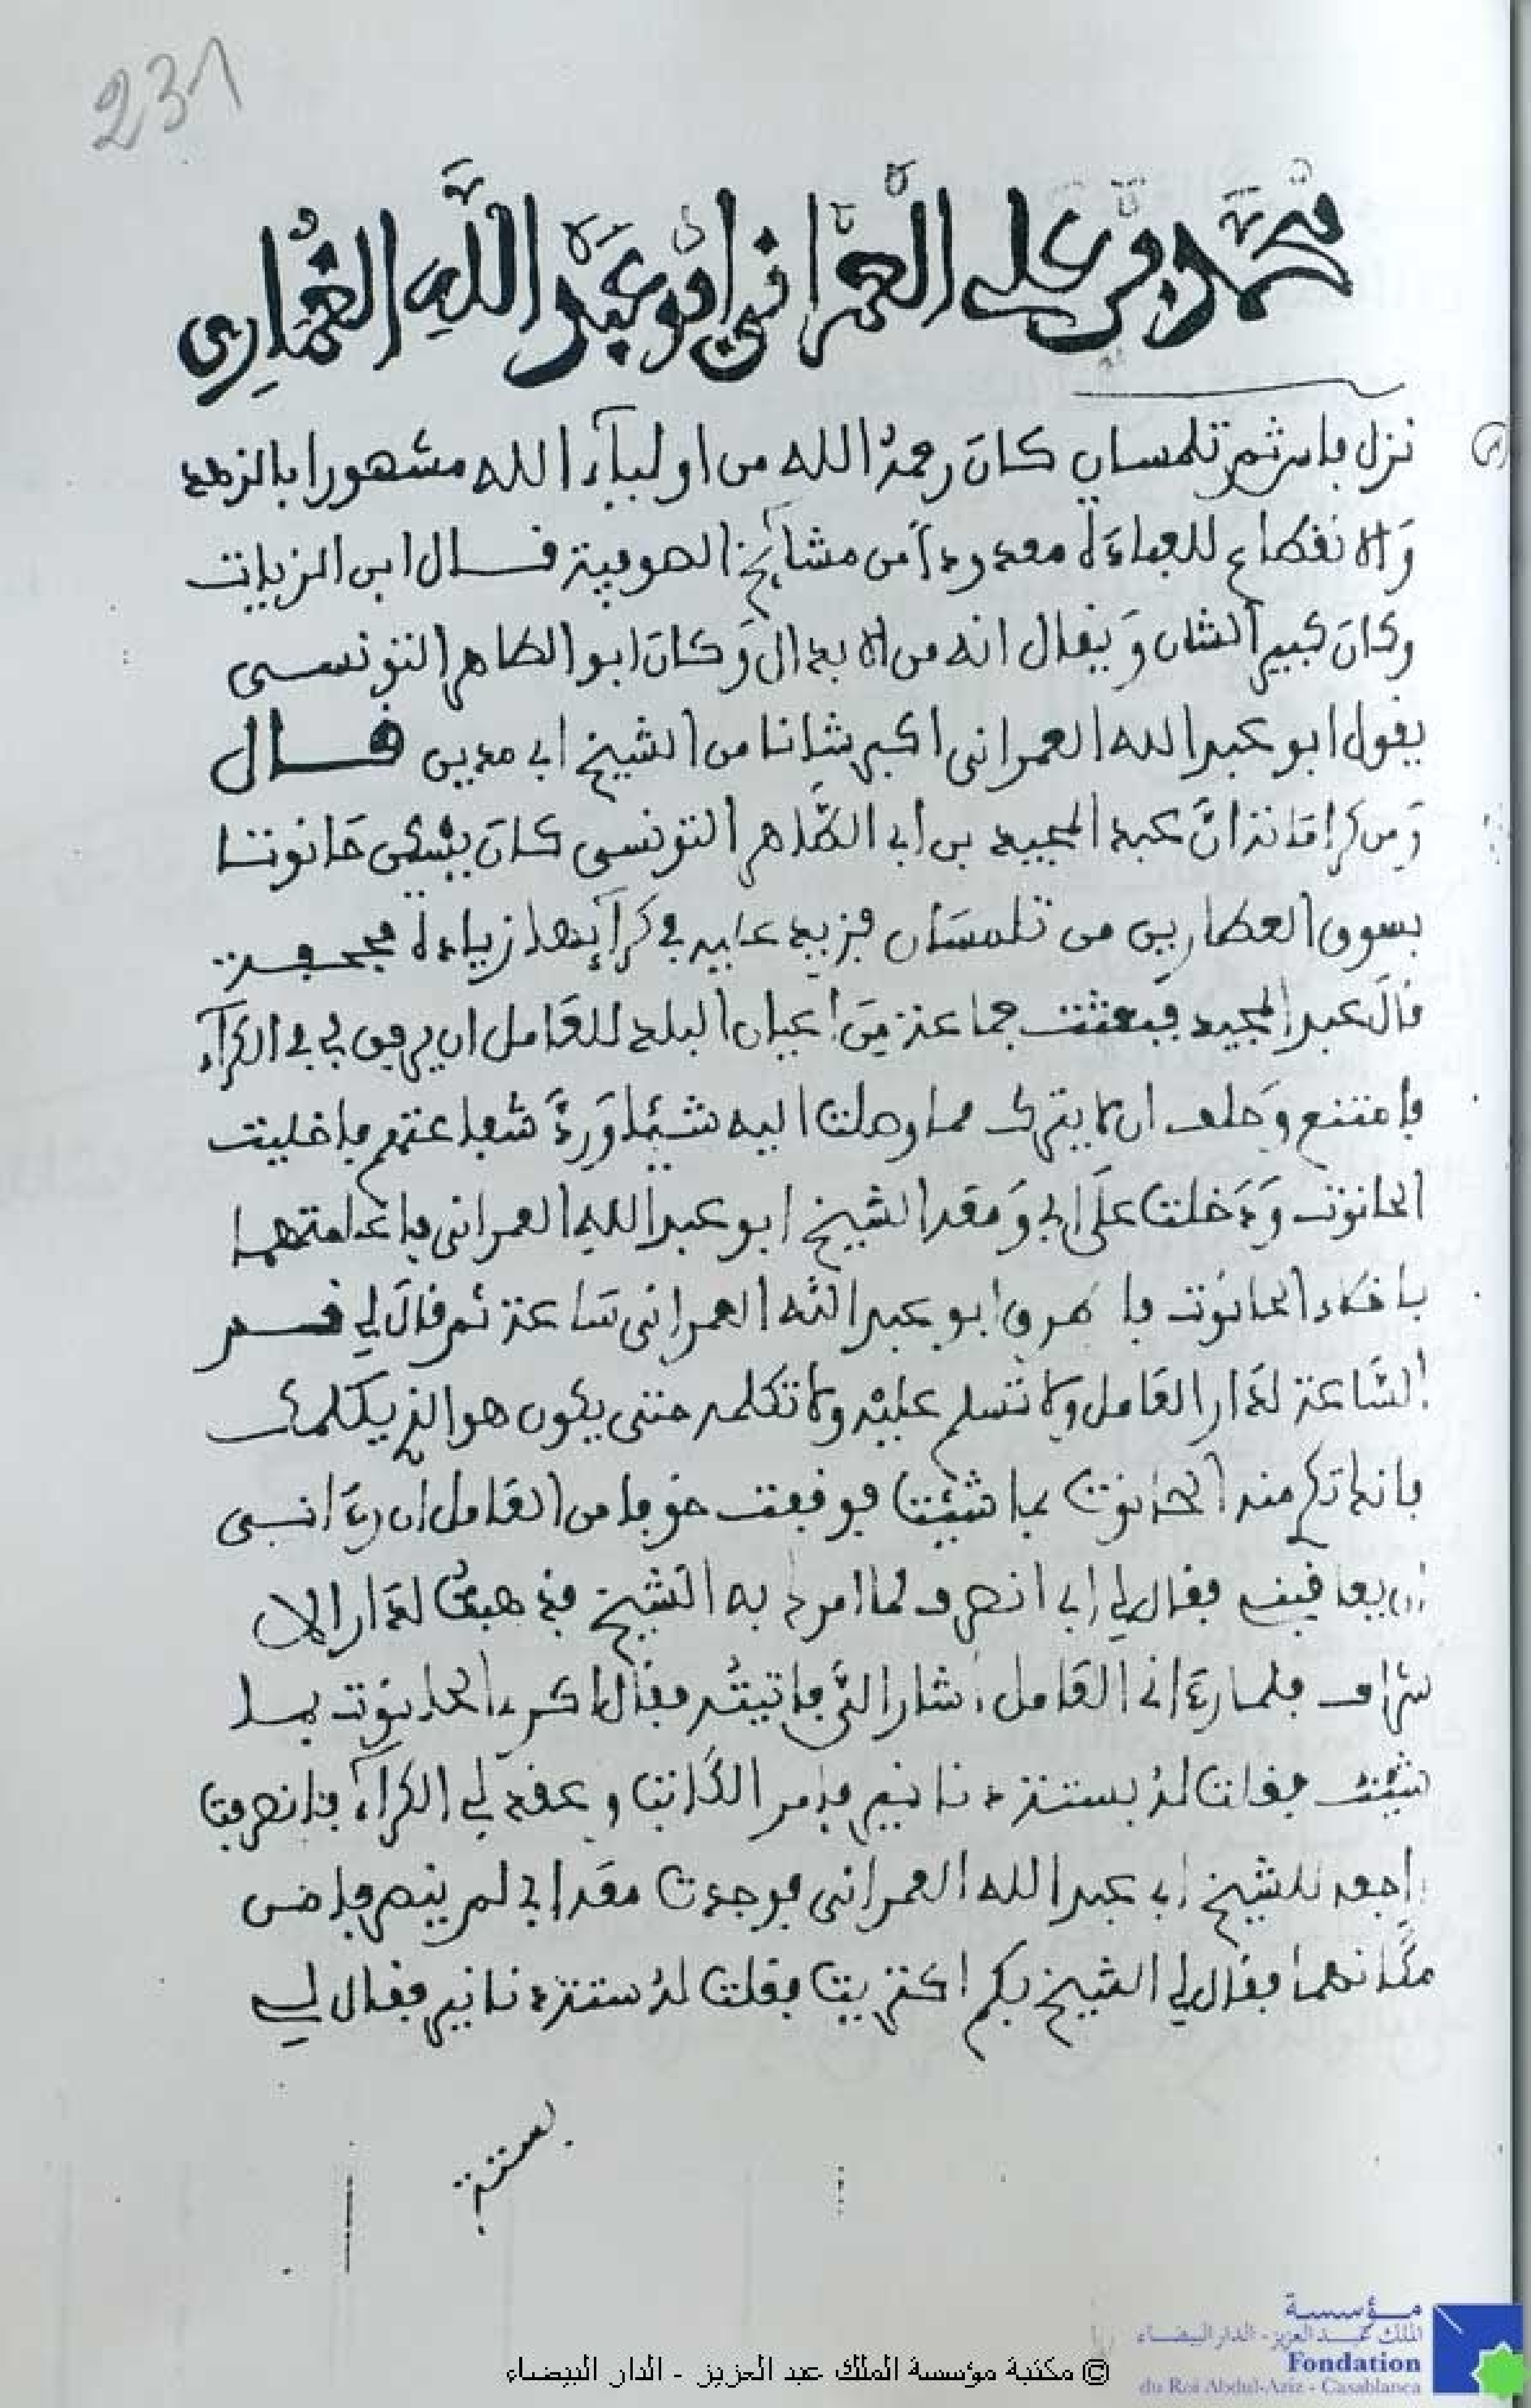 231
محمد بن علي العمراني ابو عبد الله الغماري
نزل فاس ثم تلمسان كان رحمه الله من اوليآء الله مشهورا بالزهد
والانقطاع للعبادة معدودا من مشائخ الصوفية قال ابن الزيات
وكان كبير الشان ويقال انه من الابدال وكان ابو الطاهر التونسي
يقول ابو عبد الله العمراني اكبر شانا من الشيخ ابي مدين قال
ومن كراماته ان عبد المجيد بن ابي الطاهر التونسي كان يسكن حانوتا
بسوق العطارين من تلمسان فزيد عليه في كرآئها زيادة مجحفة
قال عبد المجيد فبعثت جماعة من اعيان البلد للعامل ان يرفق بي في الكرآء
فامتنع وحلف ان لا يترك مما وصلت اليه شيئا ورد شفاعتهم فاخليت
الحانوت ودخلت على ابي ومعه الشيخ ابو عبد الله العمراني فاعلمتهما
باخلاء الحانوت فاطرق ابو عبد الله العمراني ساعة ثم قال لي قم
الساعة لدار العامل ولا تسلم عليه ولا تكلمه حتى يكون هو الذي يكلمك
فانك تكر منه الحانوت بما شئت فوقفت خوفا من العامل ان رءاني
ان يعاقبني فقال لي ابي انصرف لما امرك به الشيخ فذهبت لدار الا
شراف فلما رءاني العامل اشار الي فاتيته فقال اكر الحانوت بما
شئت فقلت له بستة دنانير فامر الكاتب وعقد لي الكرآء فانصرفت
راجعا للشيخ ابي عبد الله العمراني فوجدته مع ابي لم ينصرفا من
مكانهما فقال لي الشيخ بكم اكتريت فقلت له بستة دنانير فقال لي
بستة
مؤسسة
الملك عبد العزيز - الدار البيضاء
Fondation
du Roi Abdul-Aziz - Casablanca
© مكتبة مؤسسة الملك عبد العزيز - الدار البيضاء